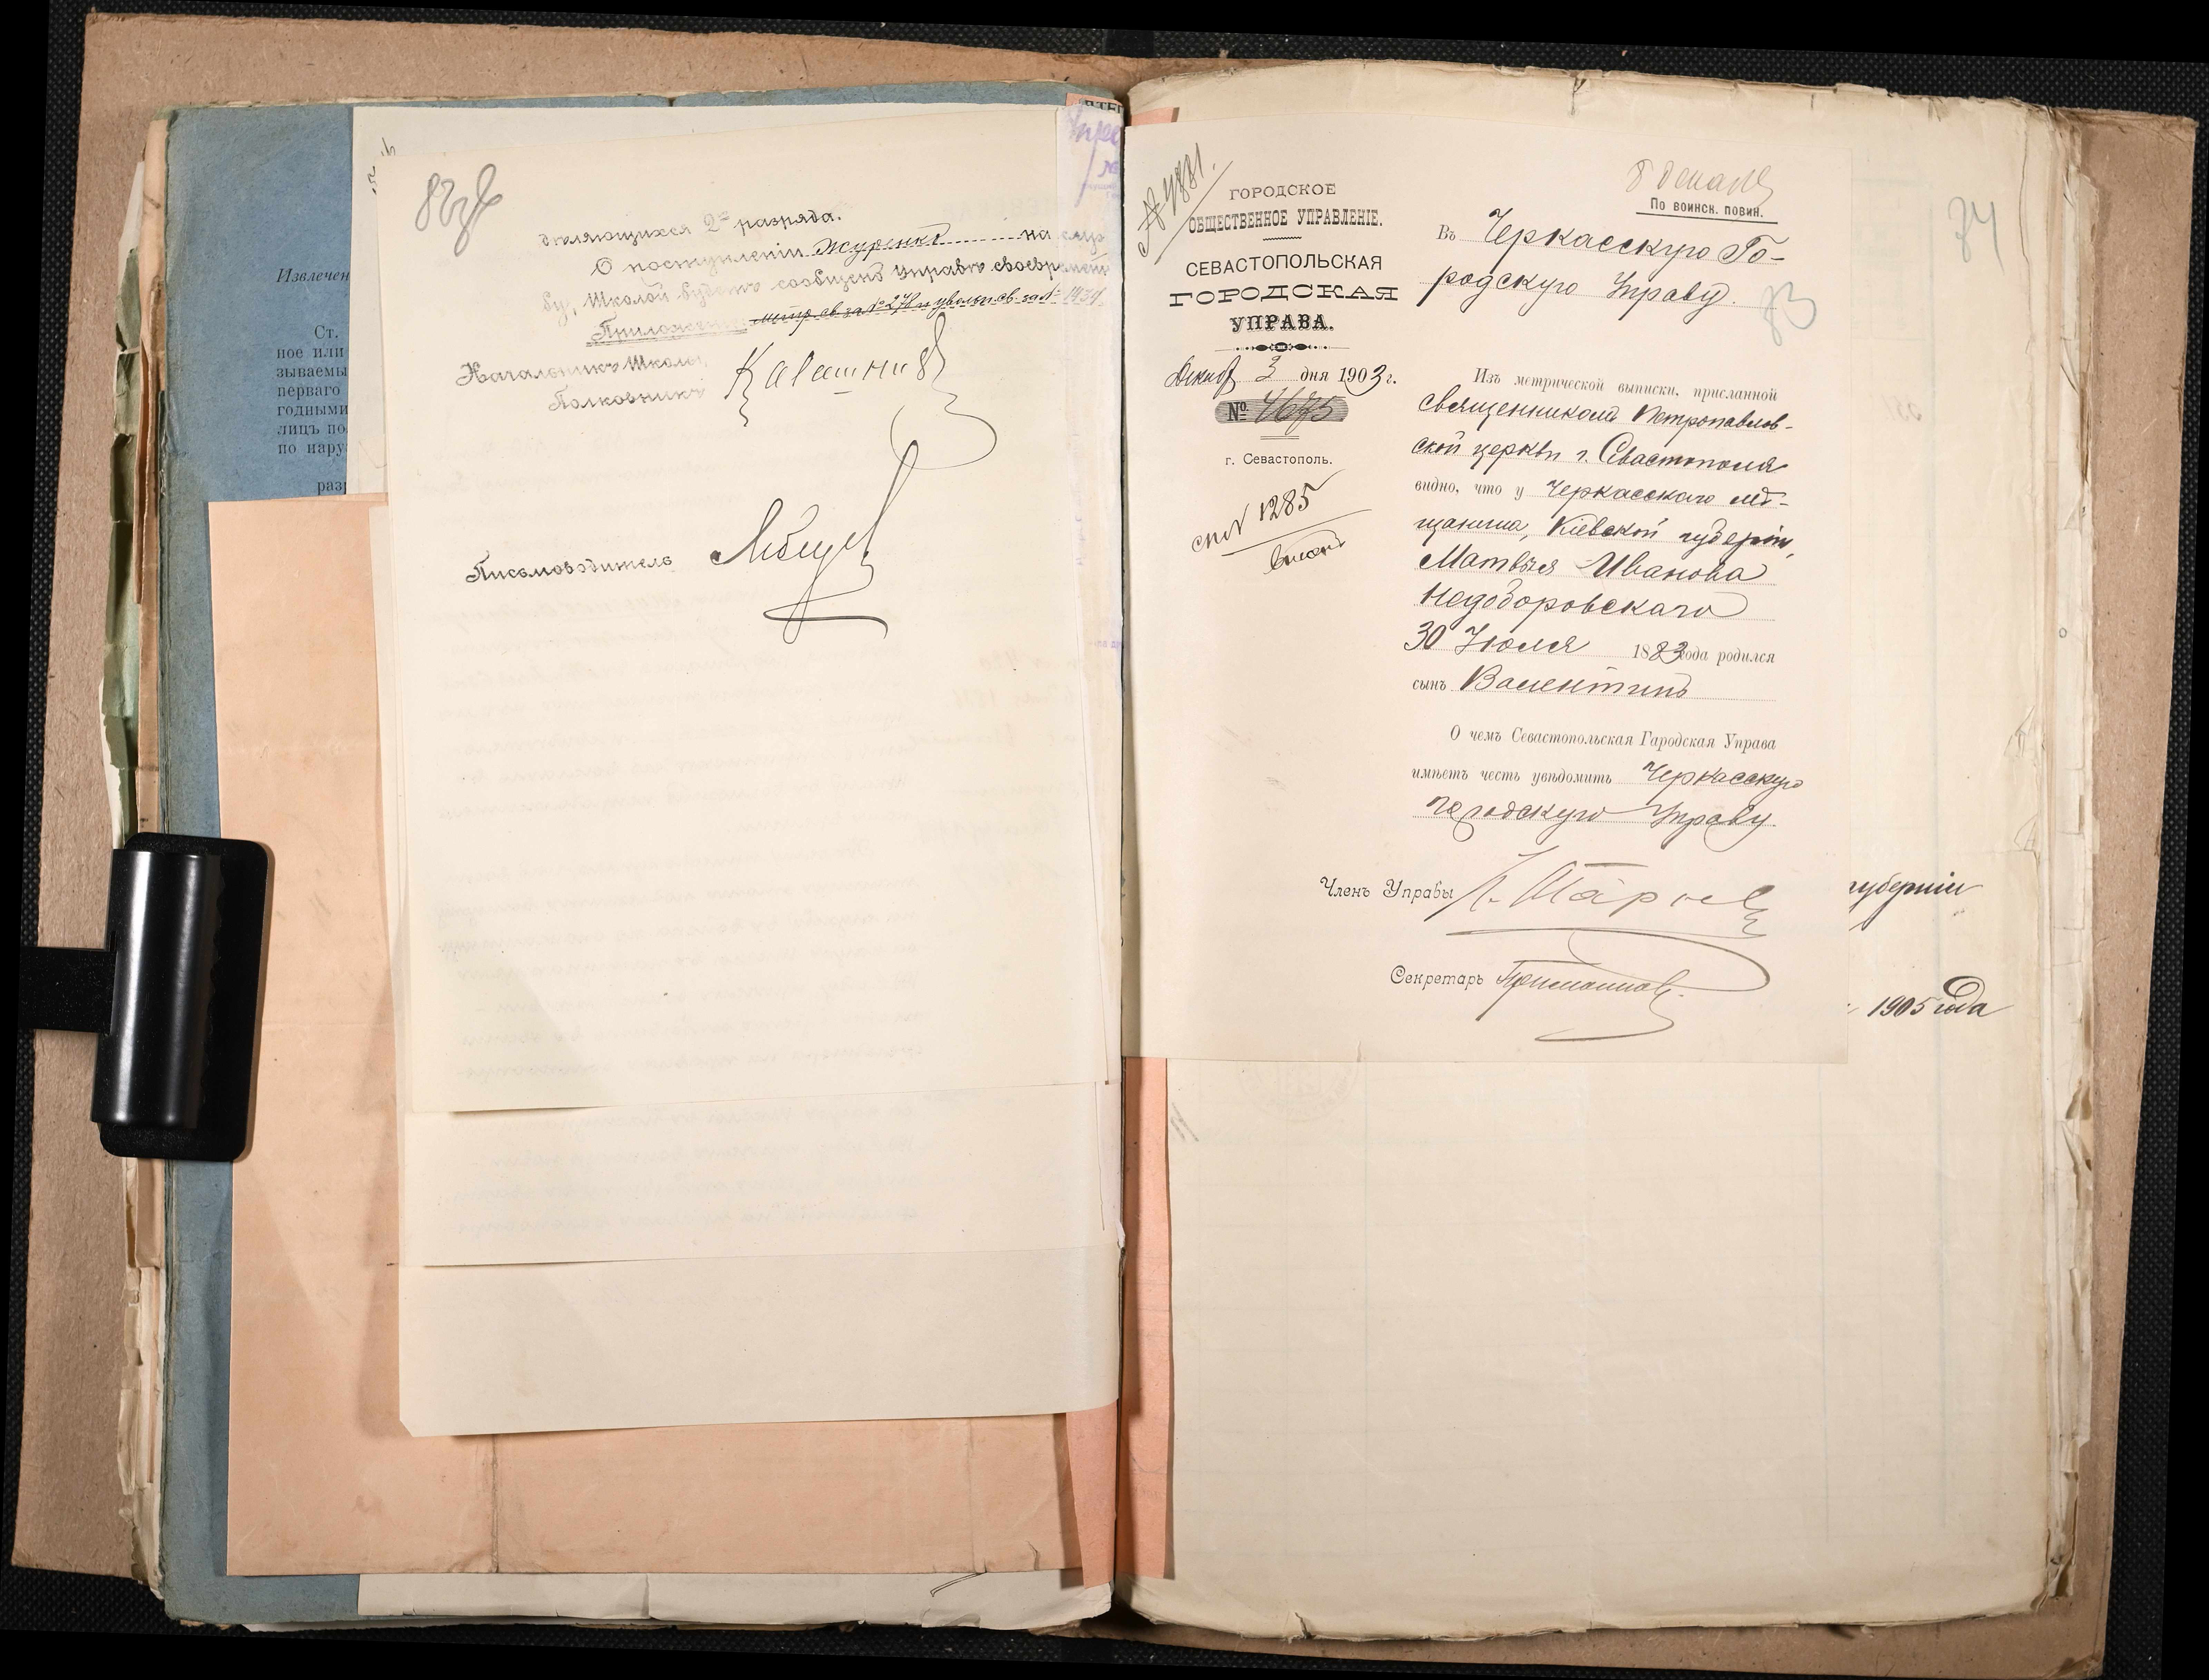 82 об
дѣляющихся 2го разряда.
О поступленіи Журенко на служ
бу, Школой будетъ сообщено Управѣ своевременно
Приложеніе: метр. св. за № 274 и увольн. св. за № 1434.
Начальникъ Школы,
Полковникъ
Письмоводитель
Извлечен
Ст.
ное или
зываемы
перваго
годными
лицъ по
по нару
разр
№ 4881.
ГОРОДСКОЕ
ОБЩЕСТВЕННОЕ УПРАВЛЕНІЕ.
СЕВАСТОПОЛЬСКАЯ
ГОРОДСКАЯ
УПРАВА.
Декаб 3 дня 1903 г.
№ 4675
г. Севастополь.
1285
8 декаб
По воинск. повин.
84
Въ Черкасскую Го-
родскую Управу.
83
Изъ метрической выписки, присланной
священникомъ Петропавлов-
ской церкви г. Севастополя
видно, что у Черкасскаго мѣ-
щанина, Кіевской губерніи,
Матвѣя Иванова
Недоборовскаго
30 Іюля 1883 года родился
сынъ Валентинъ
О чемъ Севастопольская Гародская Управа
имѣетъ честь увѣдомить Черкасскую
городскую Управу.
Членъ Управы
Секретарь
губерніи
1905 года